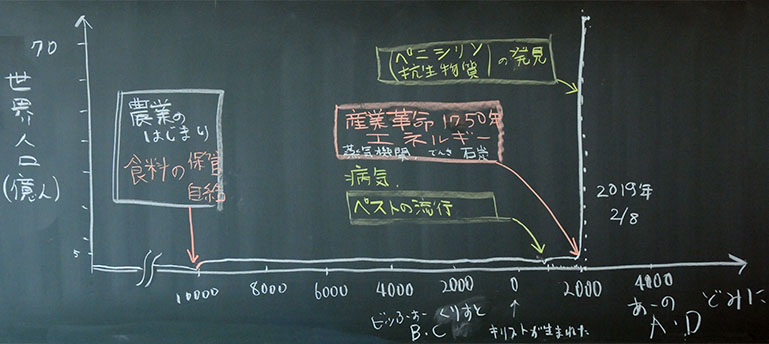 70
世界人口(億人)
5
農業の
はじまり
食料の保管
自給
(ペニシリン
抗生物質)の発見
産業革命 1750年
エネルギー
蒸気機関、でんき 石炭
病気
ペストの流行
2019年
2/8
10000 8000 6000 4000 2000 0 2000 4000
ビッふぉあー くりすと
B.C
キリストが生まれた
あーの どみに
A.D